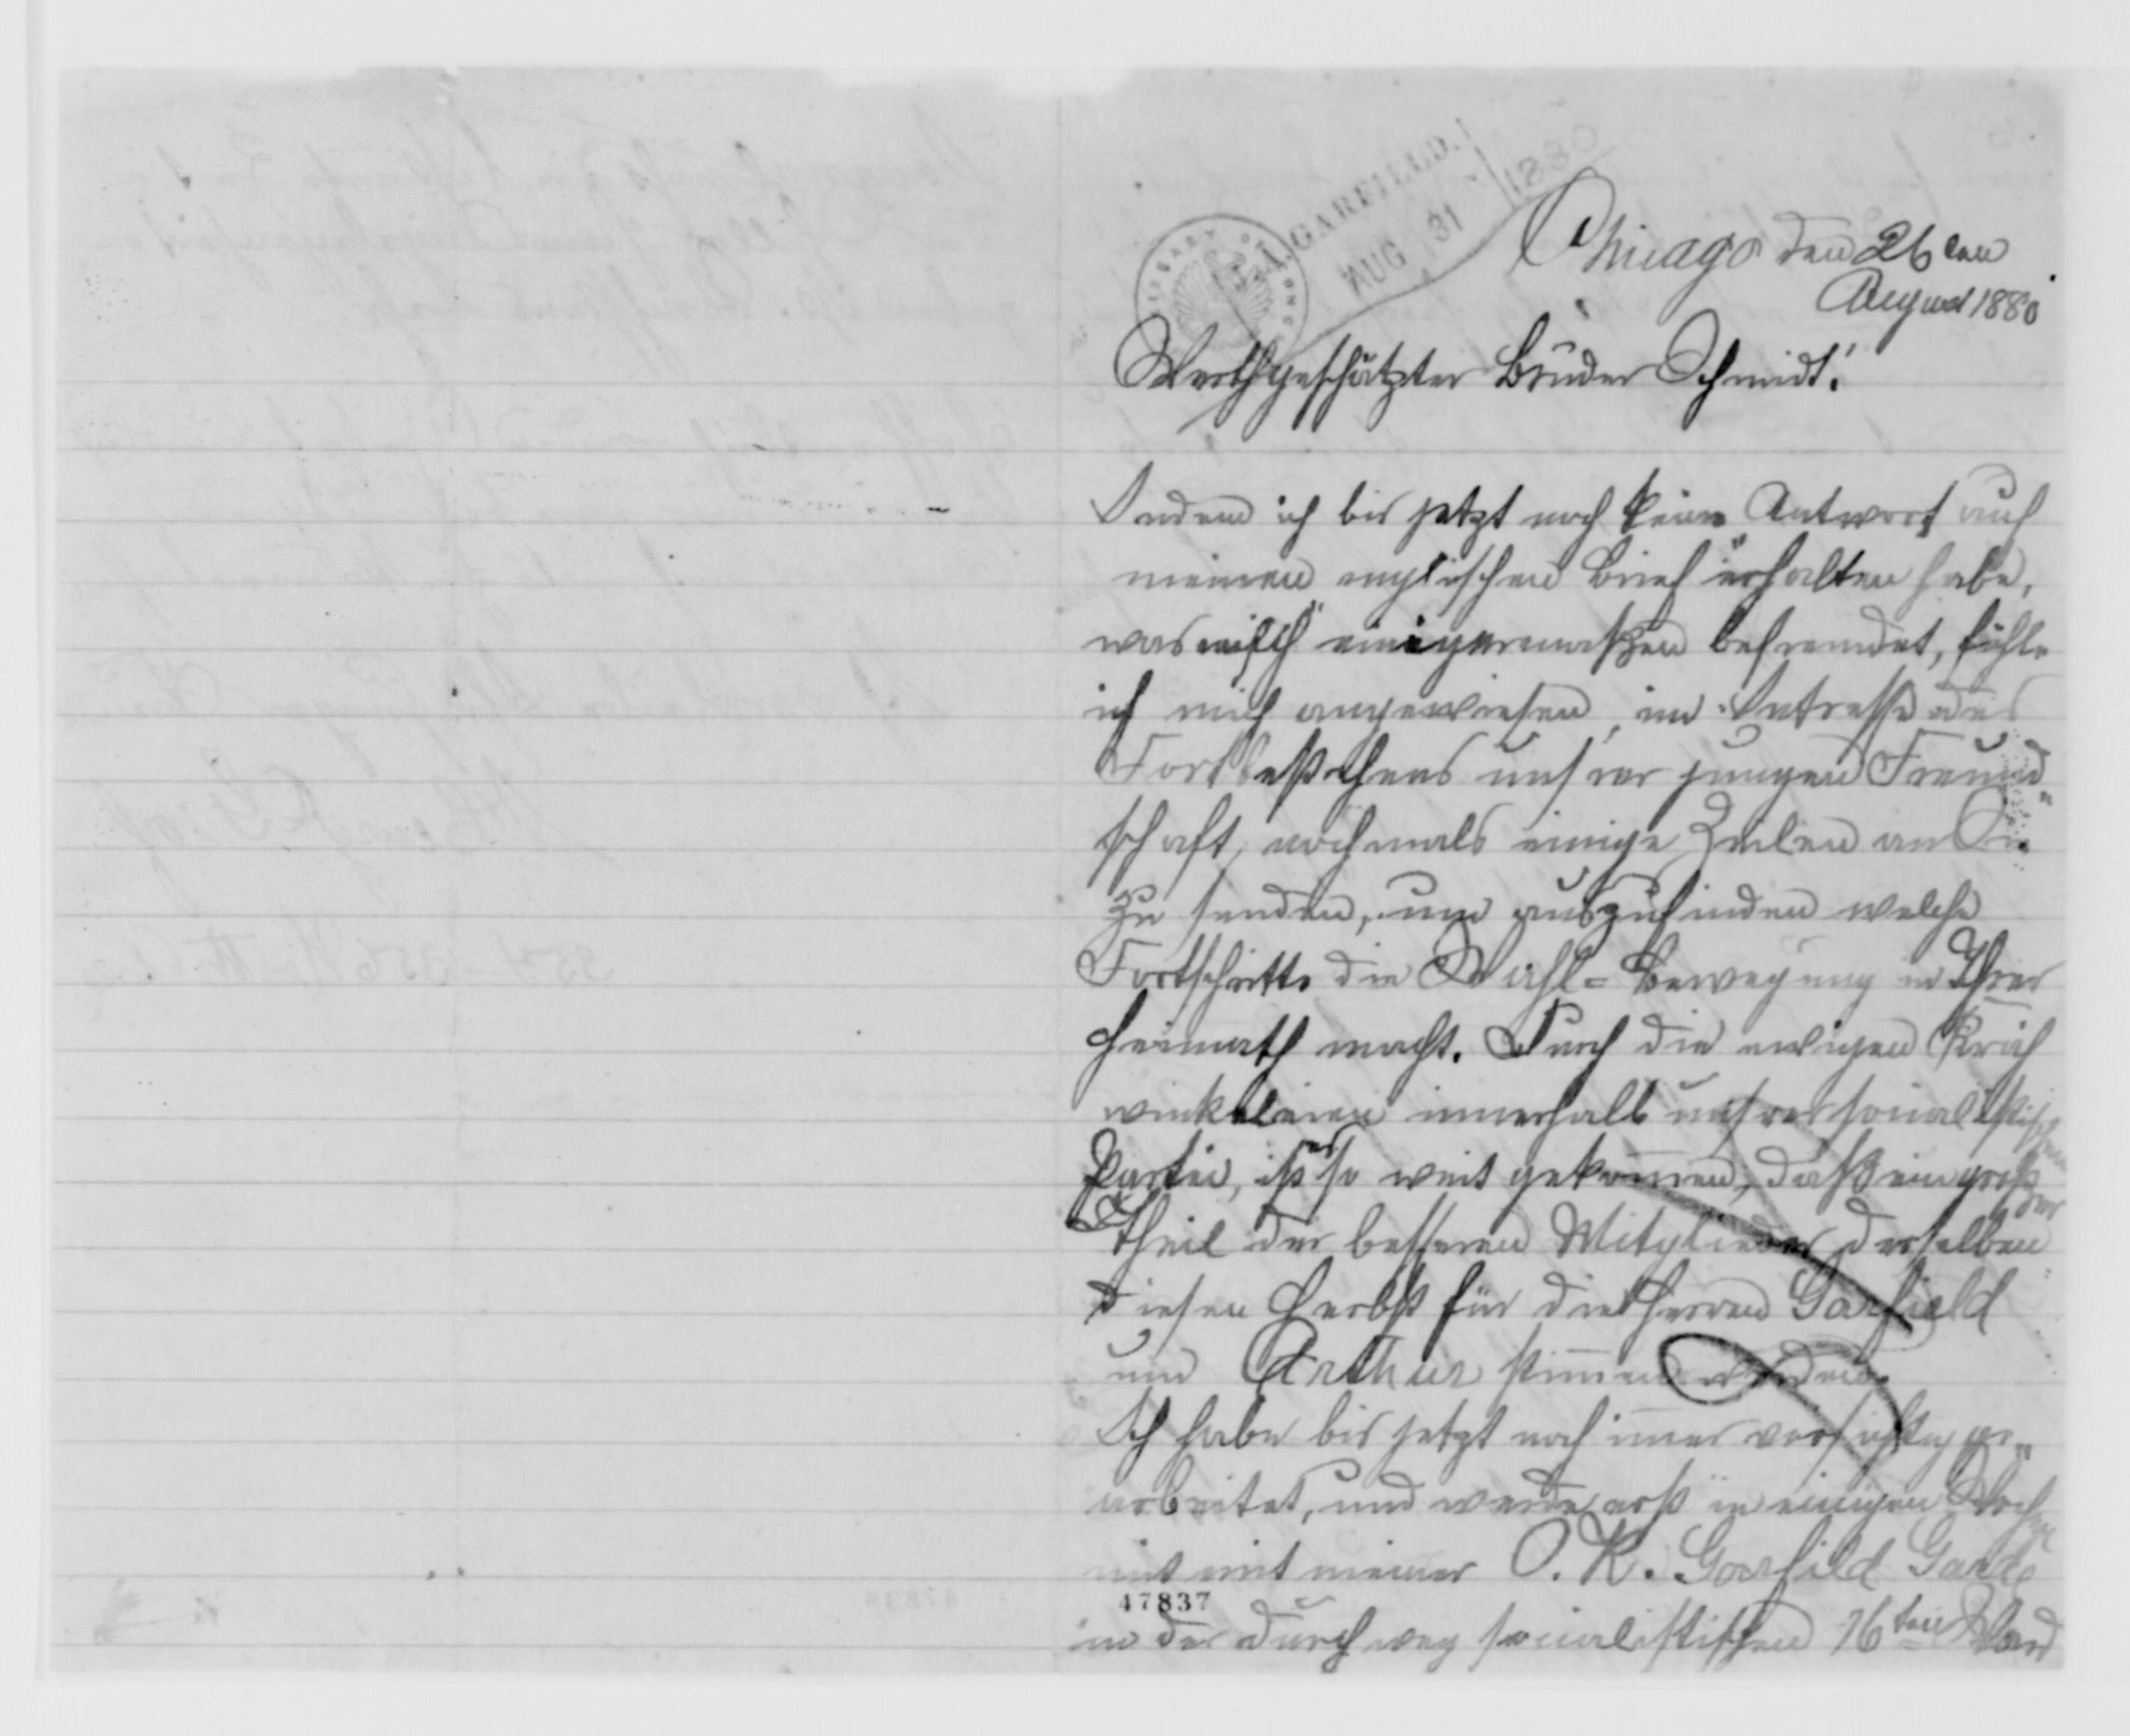 J. A. GARFIELD.
AUG 31 1880
LIBRARY OF CONGRESS
Chicago den 26ten
August 1880
Werthgeschätzter Bruder Schmidt!
Indem ich bis jetzt noch keine Antwort auf
meinen englischen Brief erhalten habe,
was mich einigermaßen befremdet, fühle
ich mich angewiesen, im Intresse des
Fortbestehens unsrer jungen Freund„
schaft, nochmals einige Zeilen an Sie
zu senden, um auszufinden welche
Fortschritte die Wahl=Bewegung in Ihrer
Heimath macht. Durch die ewigen Kräh
winkeleien innerhalb unsrer socialistischen
Partei, ist es so weit gekommen, daß ein großer
Theil der besseren Mitglieder derselben
diesen Herbst für die Herren Garfield
und Arthur stimmen werden.
Ich habe bis jetzt noch immer vorsichtig ge„
arbeitet, und werde erst in einigen Wochen
mit meiner O. K. Garfild Garde
47837
in der durchweg socialistischen 16ten Ward